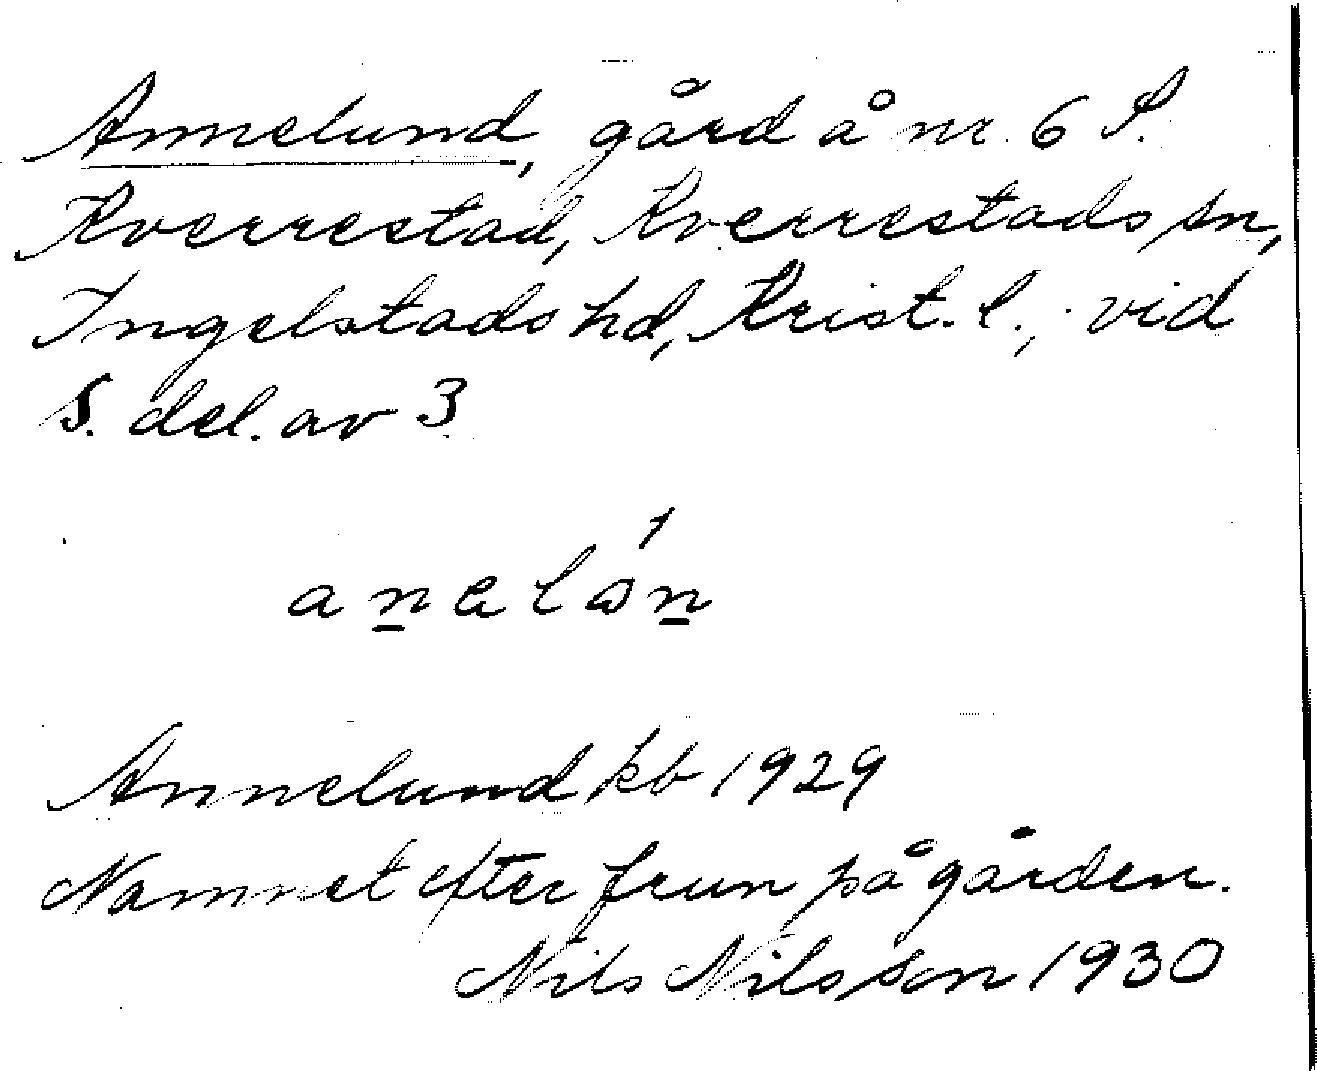 Annelund, gård å nr. 6 S.
Kverrestad, Kverrestads sn,
Ingelstads hd, Krist. l., vid
S. del. av 3.
Annelund kb 1929
Namnet efter frun på gården.
Nils Nilsson 1930